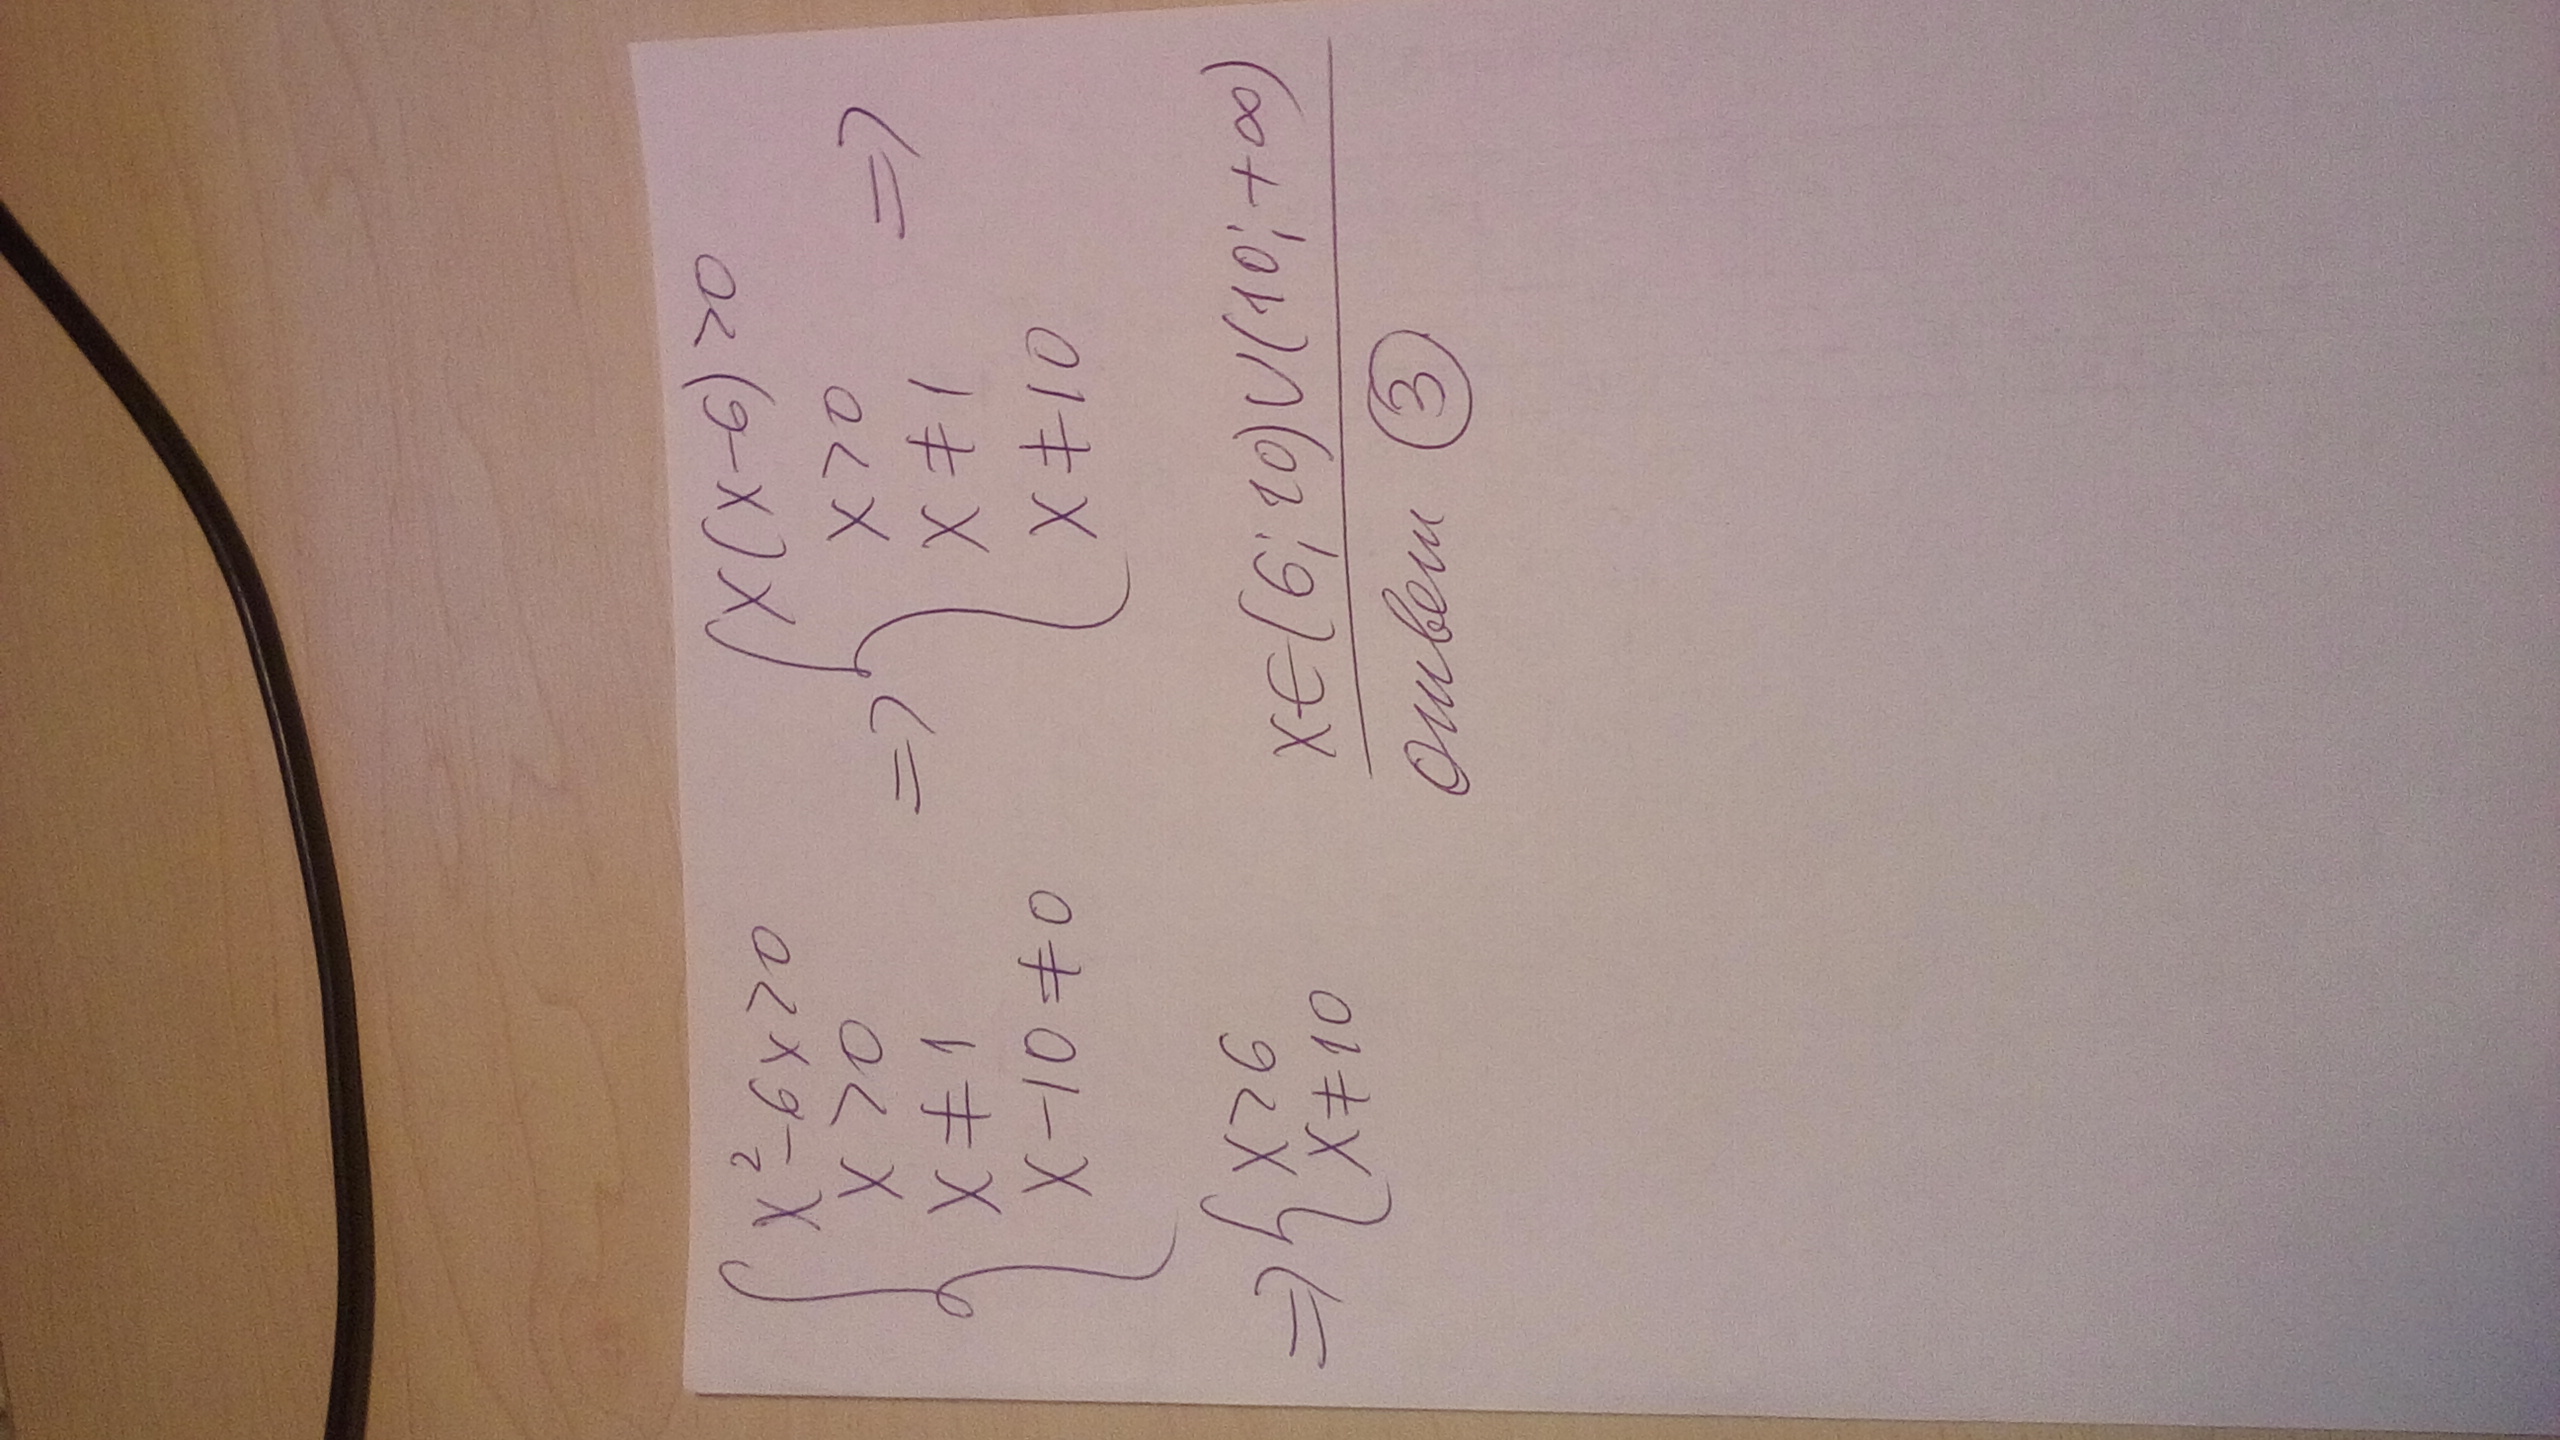 x²-6x>0
x>0
x≠1
x-10≠0
=>
x(x-6)>0
x>0
x≠1
x≠10
=>
=> x>6
x≠10
x∈(6;10)∪(10;+∞)
Ответ 3